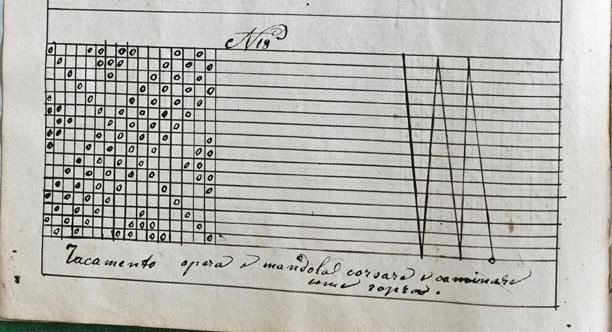 N 18
Tacamento opera à mandola corsare e caminare
come sopra.